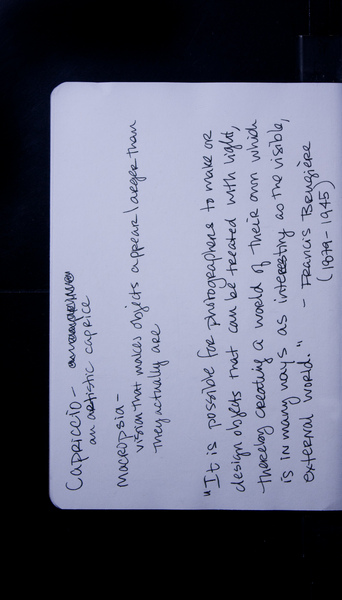 Capriccio -
an artistic caprice
Macropsia -
vision that makes objects appear larger than
they actually are
"It is possible for photographers to make or
design objects that can be treated with light,
thereby creating a world of their own which
is in many ways as interesting as the visible,
external world."
- Francis Bruguière
(1879-1945)